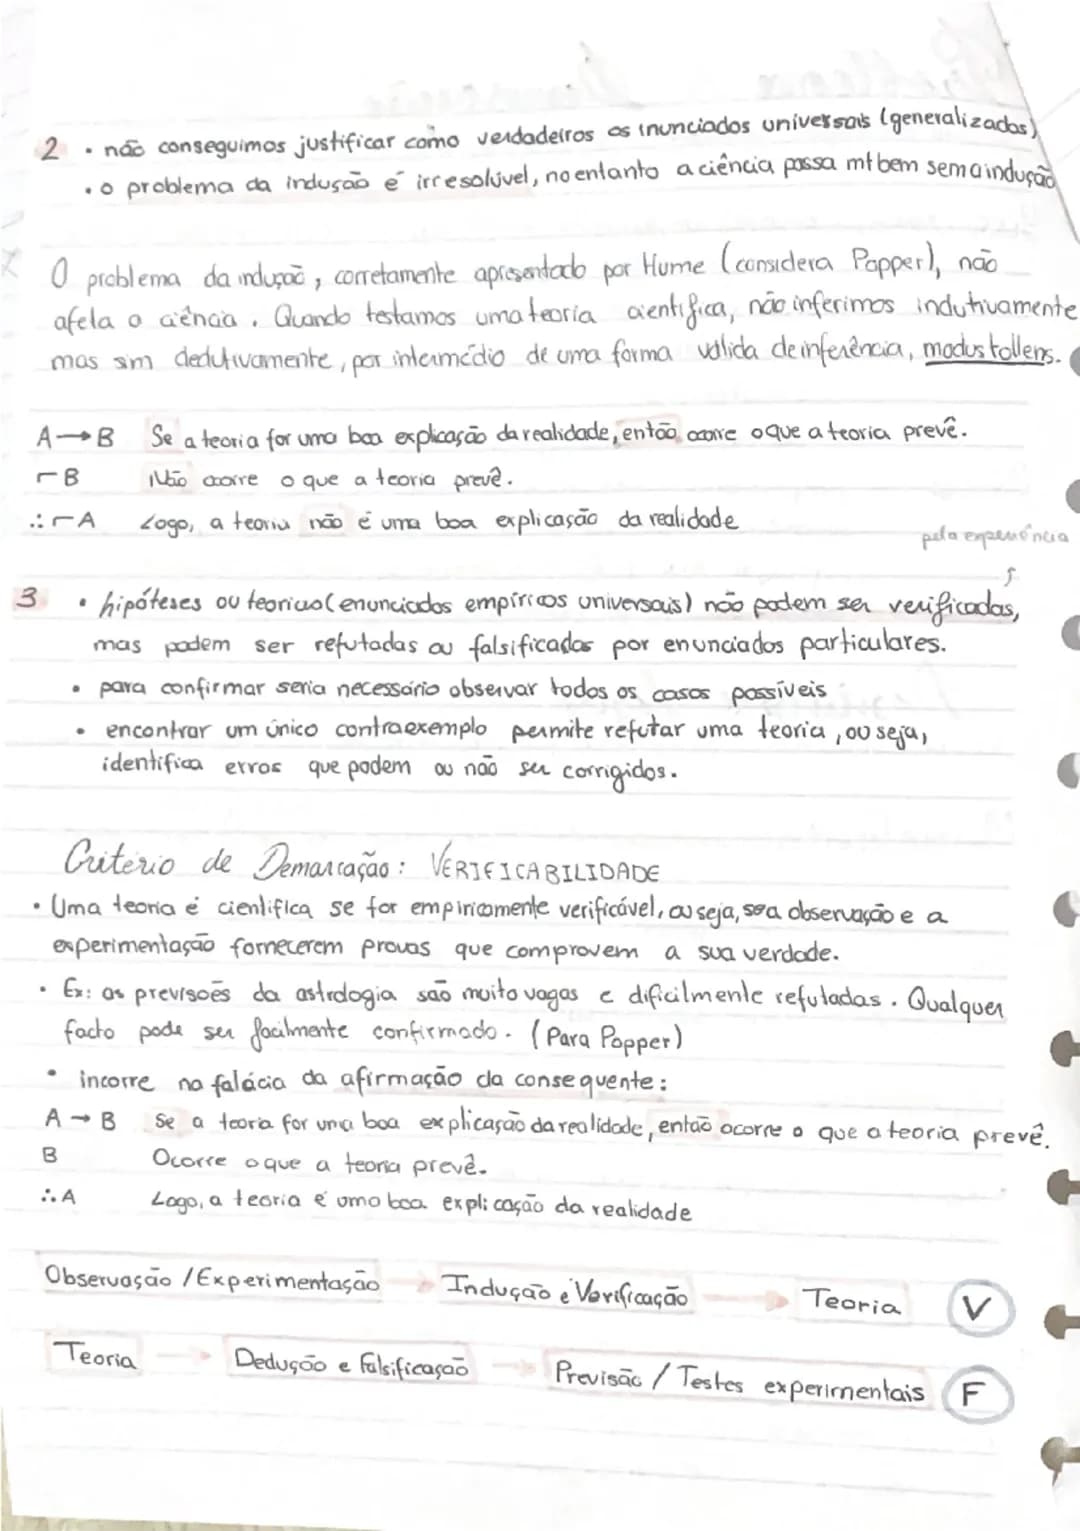 2 · não conseguimos justificar como verdadeiros os inunciados universais (generalizados)
· o problema da indução é irresolúvel, no entanto a ciência passa mt bem sem a indução
O problema da indução, corretamente apresentado por Hume (considera Popper), não
afeta a ciência. Quando testamos uma teoria científica, não inferimos indutivamente
mas sim dedutivamente, por intermédio de uma forma válida de inferência, modus tollens.
A → B Se a teoria for uma boa explicação da realidade, então ocorre o que a teoria prevê.
¬ B Não ocorre o que a teoria prevê.
∴ ¬ A Logo, a teoria não é uma boa explicação da realidade
pela experiência
3 · hipóteses ou teorias (enunciados empíricos universais) não podem ser verificadas,
mas podem ser refutadas ou falsificadas por enunciados particulares.
· para confirmar seria necessário observar todos os casos possíveis
· encontrar um único contraexemplo permite refutar uma teoria, ou seja,
identifica erros que podem ou não ser corrigidos.
Critério de Demarcação: VERIFICABILIDADE
· Uma teoria é científica se for empiricamente verificável, ou seja, se a observação e a
experimentação fornecerem provas que comprovem a sua verdade.
· Ex: as previsões da astrologia são muito vagas e dificilmente refutadas. Qualquer
facto pode ser facilmente confirmado. (Para Popper)
· incorre na falácia da afirmação da consequente:
A → B Se a teoria for uma boa explicação da realidade, então ocorre o que a teoria prevê.
B Ocorre o que a teoria prevê.
∴ A Logo, a teoria é uma boa explicação da realidade
Observação / Experimentação → Indução e Verificação → Teoria V
Teoria → Dedução e falsificação → Previsão / Testes experimentais F